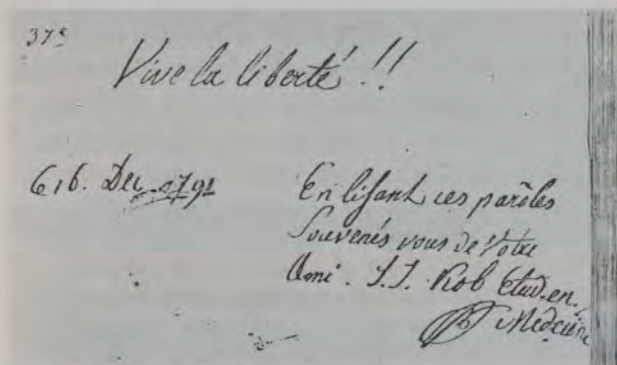 37ᵉ
Vive la liberté !!
Dec. 1791
En lisant ces paroles
Souvenés vous de Votre
Ami. J. J. Kob Etud. en
Medecine